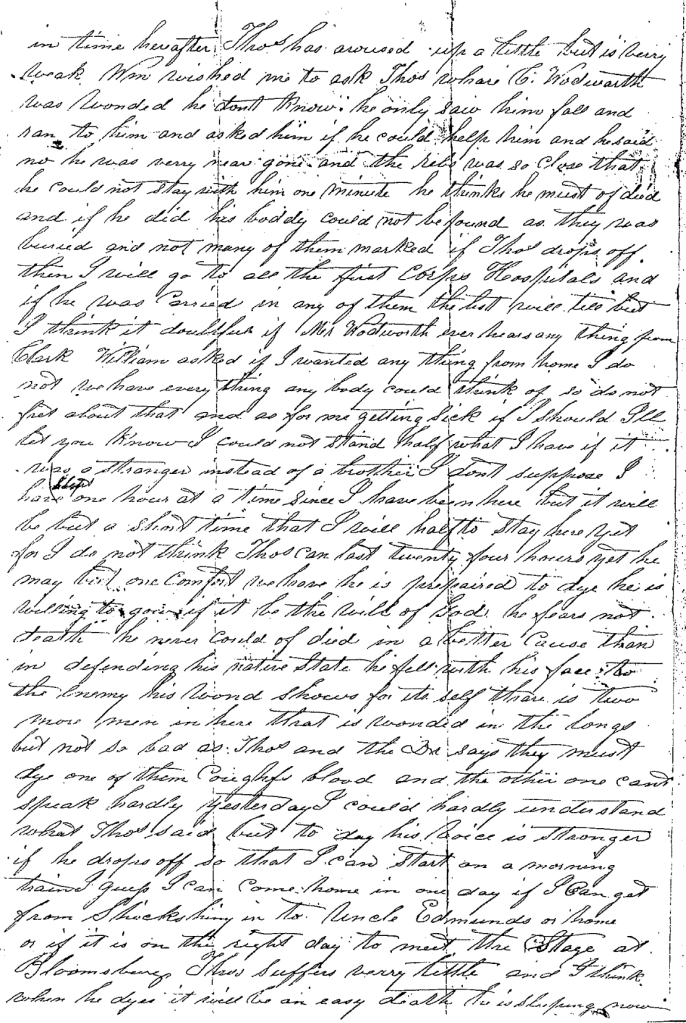 in time hereafter, Thos has aroused up a little but is verry
weak Wm wished me to ask Thos whare C. Wodworth
was wonded he dont know. he only saw him fall and
ran to him and asked him if he could help him and he said
no he was verry near gone and the rebs was so close that
he could not stay with him one minute he thinks he must of died
and if he did his boddy could not be found as they was
buried and not many of them marked if Thos drops off
then I will go to all the first Corps Hospitals and
if he was carried in any of them the list will tell but
I think it doubtful if Mrs Wodworth ever hears any thing from
Clark William asked if I wanted any thing from home I do
not we have every thing any body could think of so do not
fret about that and as for me getting sick if I should I'll
let you know I could not stand half what I have if it
was a stranger instead of a brother I dont suppose I
have slept one hour at a time since I have been here but it will
be but a short time that I will halfto stay here yet
for I do not think Thos can last twenty four hours yet he
may but one comfort we have he is prepaired to dye he is
willing to go if it be the will of God he fears not
death he never could of died in a better cause than
in defending his native State he fell with his face to
the Enemy his wond shows for its self thare is two
more men in here that is wonded in the longs
but not so bad as Thos and the Dr says they must
dye one of them coughfs blood and the other one cant
speak hardly yesterday I could hardly understand
what Thos said but to day his voice is stronger
if he drops off so that I can start on a morning
train I guess I can come home in one day if I can get
from Shickshiny in to Uncle Edmunds or home
or if it is on the right day to meet the Stage at
Bloomsburg Thos suffers verry little and I think
when he dyes it will be an easy death he is sleeping now